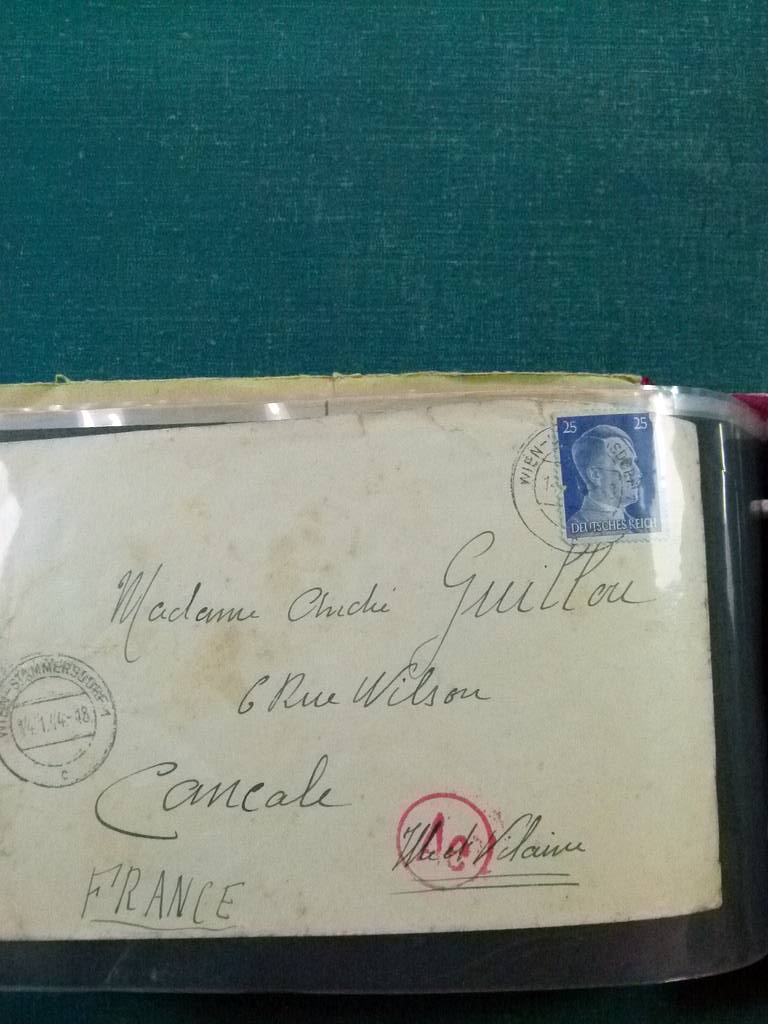 25 25
WIEN-
DEUTSCHES REICH
Madame André Guillou
6 Rue Wilson
WIEN-STAMMERSDORF 1
14.1.44-18
c
Cancale
Ae
Ille et Vilaine
FRANCE